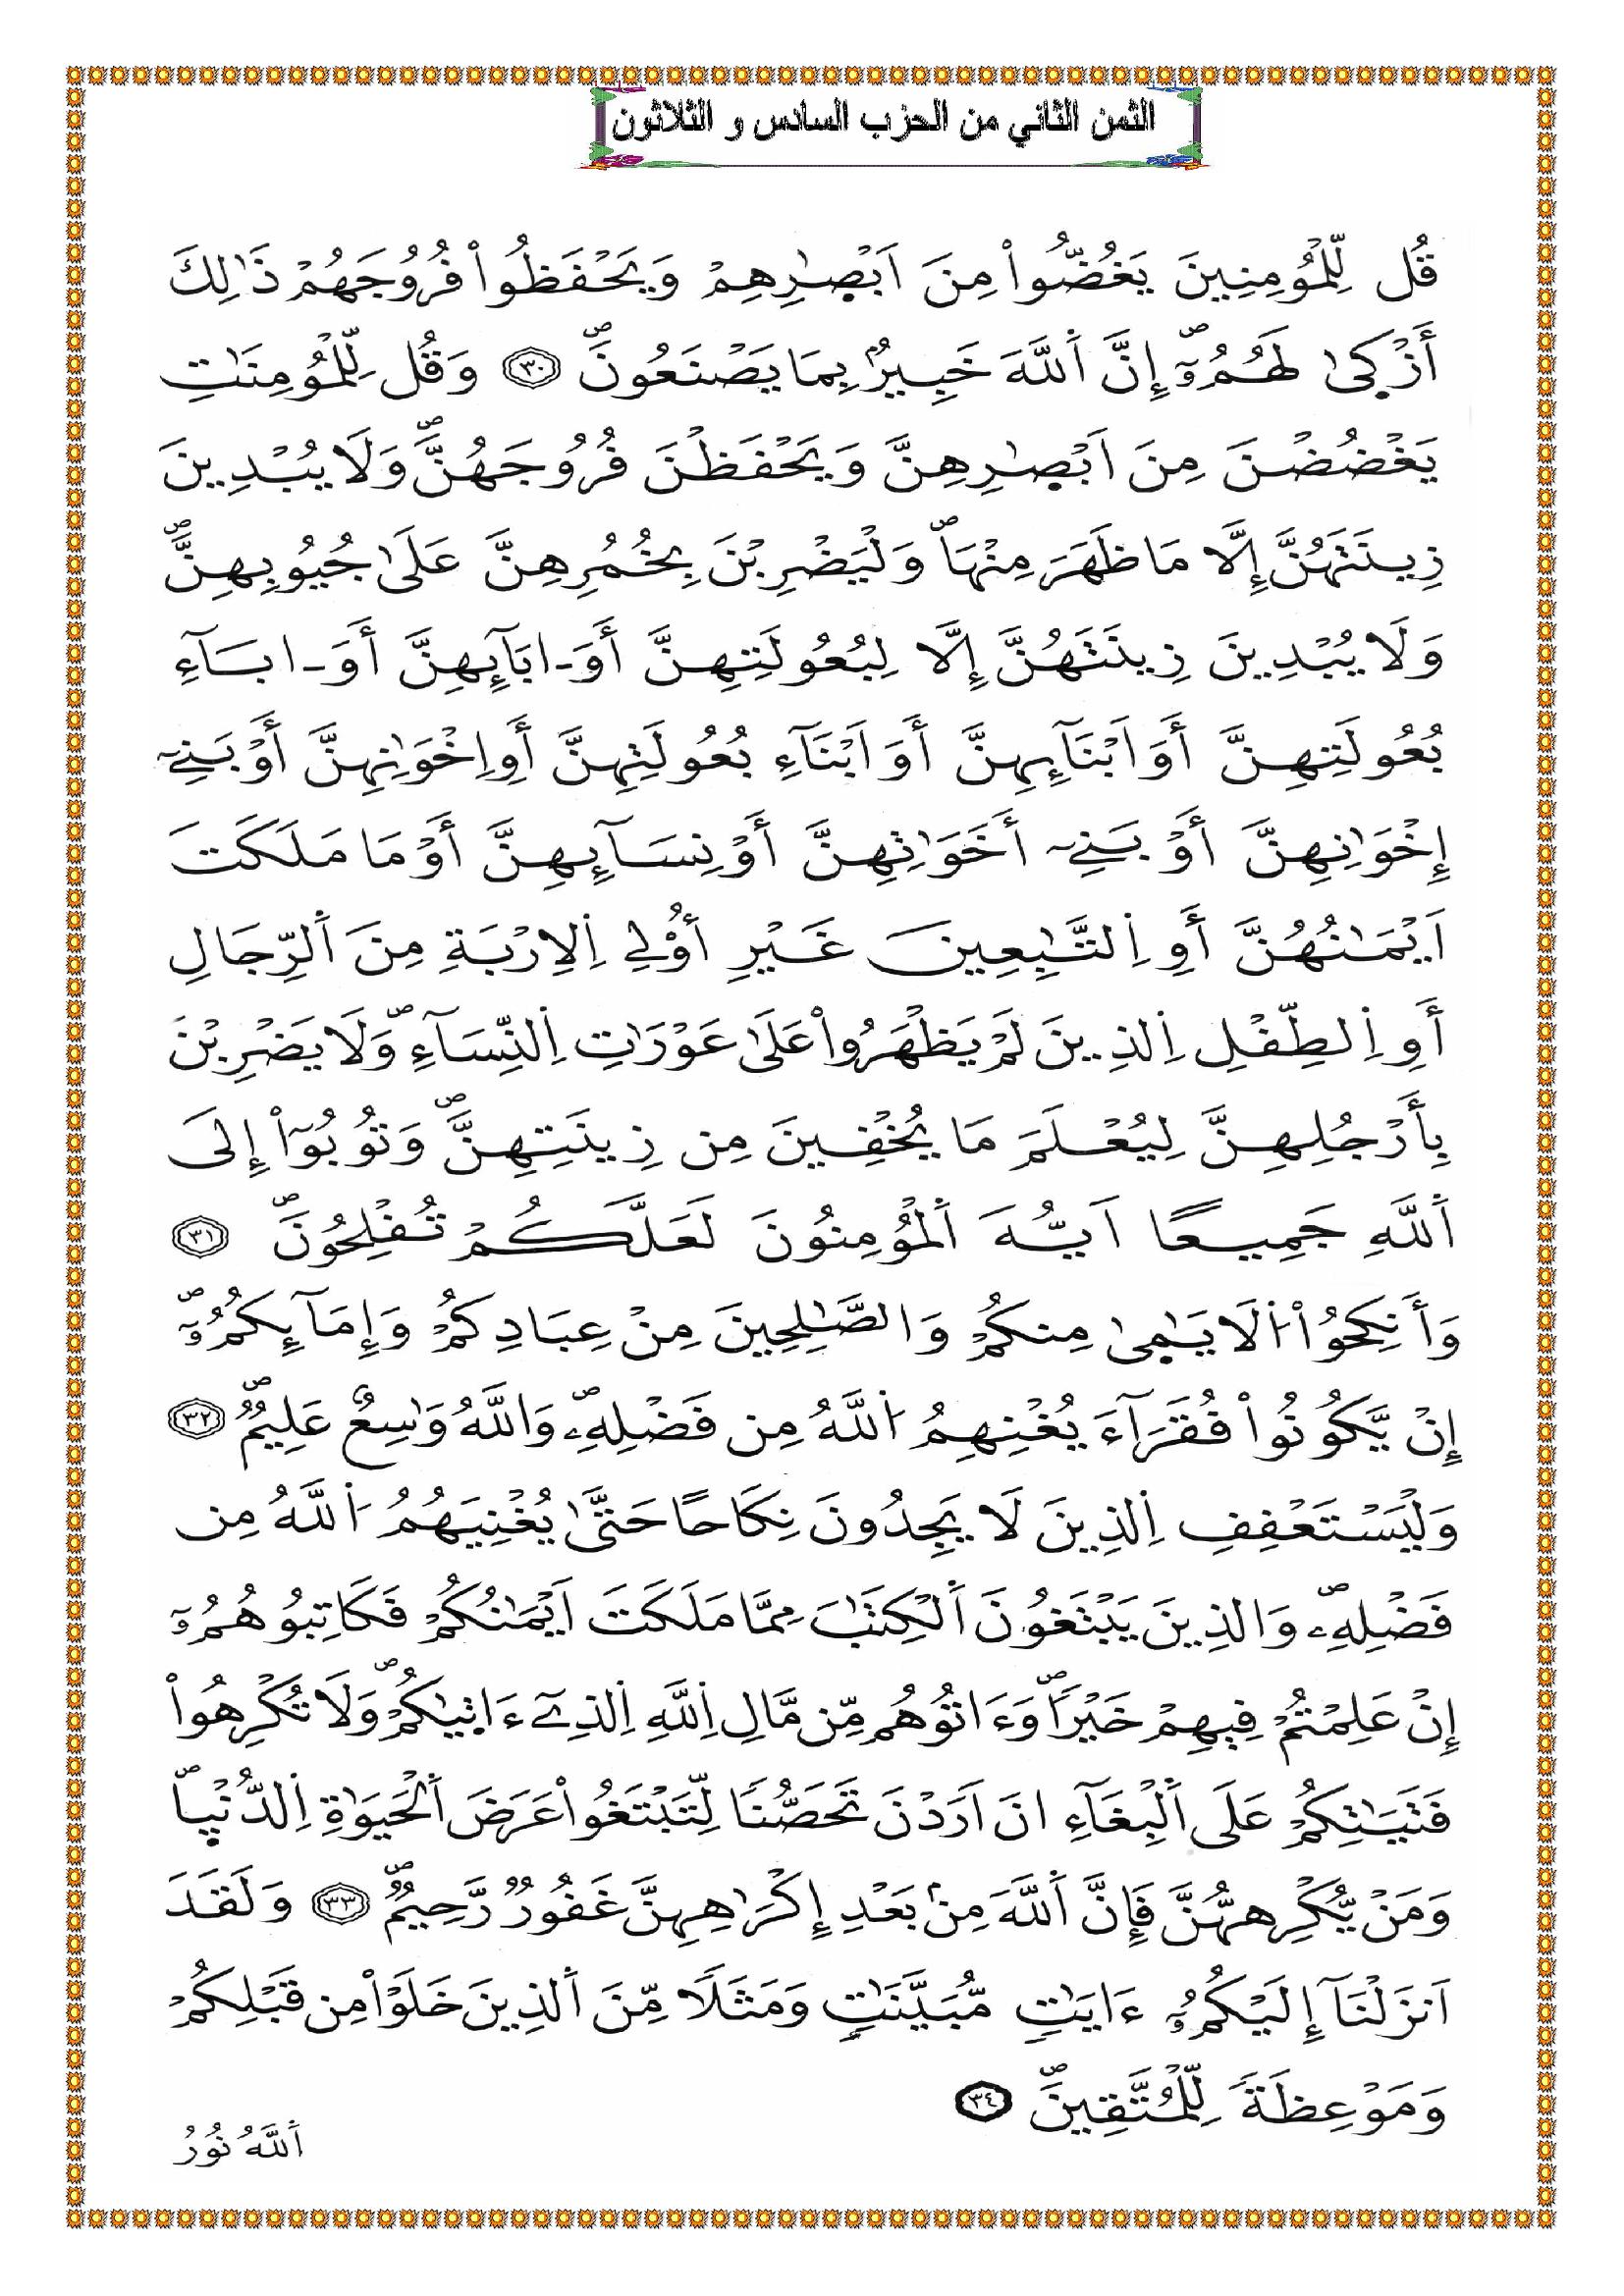 الثمن الثاني من الحزب السادس و الثلاثون
قُل لِّلْمُومِنِينَ يَغُضُّواْ مِنَ اَبْصٰ۪رِهِمْ وَيَحْفَظُواْ فُرُوجَهُمْ ذَٰلِكَ
أَزْك۪يٰ لَهُمُۥٓۖ إِنَّ اَ۬للَّهَ خَبِيرُۢ بِمَا يَصْنَعُونَۖ ٣٠ وَقُل لِّلْمُومِنَٰتِ
يَغْضُضْنَ مِنَ اَبْصٰ۪رِهِنَّ وَيَحْفَظْنَ فُرُوجَهُنَّۖ وَلَا يُبْدِينَ
زِينَتَهُنَّ إِلَّا مَا ظَهَرَ مِنْهَاۖ وَلْيَضْرِبْنَ بِخُمُرِهِنَّ عَلَيٰ جُيُوبِهِنَّۖ
وَلَا يُبْدِينَ زِينَتَهُنَّ إِلَّا لِبُعُولَتِهِنَّ أَوَ ـ ابَآئِهِنَّ أَوَ ـ ابَآءِ
بُعُولَتِهِنَّ أَوَ اَبْنَآئِهِنَّ أَوَ اَبْنَآءِ بُعُولَتِهِنَّ أَوِ اِخْوَٰنِهِنَّ أَوْ بَنِےٓ
إِخْوَٰنِهِنَّ أَوْ بَنِےٓ أَخَوَٰتِهِنَّ أَوْ نِسَآئِهِنَّ أَوْ مَا مَلَكَتَ
اَيْمَٰنُهُنَّ أَوِ اِ۬لتَّٰبِعِينَ غَيْرِ أُوْلِے اِ۬لِارْبَةِ مِنَ اَ۬لرِّجَالِ
أَوِ اِ۬لطِّفْلِ اِ۬لذِينَ لَمْ يَظْهَرُواْ عَلَيٰ عَوْرَٰتِ اِ۬لنِّسَآءِۖ وَلَا يَضْرِبْنَ
بِأَرْجُلِهِنَّ لِيُعْلَمَ مَا يُخْفِينَ مِن زِينَتِهِنَّۖ وَتُوبُوٓاْ إِلَي
اَ۬للَّهِ جَمِيعًا اَيُّهَ اَ۬لْمُومِنُونَ لَعَلَّكُمْ تُفْلِحُونَۖ ٣١
وَأَنكِحُواْ اُ۬لَايَٰم۪يٰ مِنكُمْ وَالصَّٰلِحِينَ مِنْ عِبَادِكُمْ وَإِمَآئِكُمُۥٓۖ
إِنْ يَّكُونُواْ فُقَرَآءَ يُغْنِهِمُ اُ۬للَّهُ مِن فَضْلِهِۦۖ وَاللَّهُ وَٰسِعٌ عَلِيمٌۖ ٣٢
وَلْيَسْتَعْفِفِ اِ۬لذِينَ لَا يَجِدُونَ نِكَاحًا حَتَّيٰ يُغْنِيَهُمُ اُ۬للَّهُ مِن
فَضْلِهِۦۖ وَالذِينَ يَبْتَغُونَ اَ۬لْكِتَٰبَ مِمَّا مَلَكَتَ اَيْمَٰنُكُمْ فَكَاتِبُوهُمُۥٓ
إِنْ عَلِمْتُمْ فِيهِمْ خَيْراًۖ وَءَاتُوهُم مِّن مَّالِ اِ۬للَّهِ اِ۬لذِےٓ ءَات۪يٰكُمْۖ وَلَا تُكْرِهُواْ
فَتَيَٰتِكُمْ عَلَي اَ۬لْبِغَآءِ انَ اَرَدْنَ تَحَصُّناً لِّتَبْتَغُواْ عَرَضَ اَ۬لْحَيَوٰةِ اِ۬لدُّنْي۪اۖ
وَمَنْ يُّكْرِههُّنَّ فَإِنَّ اَ۬للَّهَ مِنۢ بَعْدِ إِكْرَٰهِهِنَّ غَفُورٌ رَّحِيمٌۖ ٣٣ وَلَقَدَ
اَنزَلْنَآ إِلَيْكُمُۥٓ ءَايَٰتٍ مُّبَيَّنَٰتٍ وَمَثَلًا مِّنَ اَ۬لذِينَ خَلَوْاْ مِن قَبْلِكُمْ
وَمَوْعِظَةً لِّلْمُتَّقِينَۖ ٣٤
اَ۬للَّهُ نُورُ